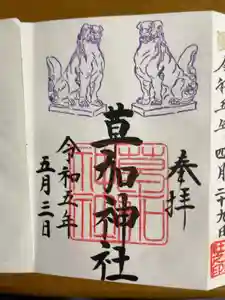 奉拝
草加神社
令和五年
五月三日
令和五年四月二十九日